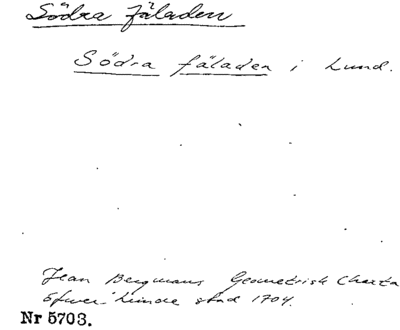 Södra fäladen
Södra fäladen i Lund.
Jean Bergmans Geometrisk Charta
öfwer Lunde stad 1704.
Nr 5703.